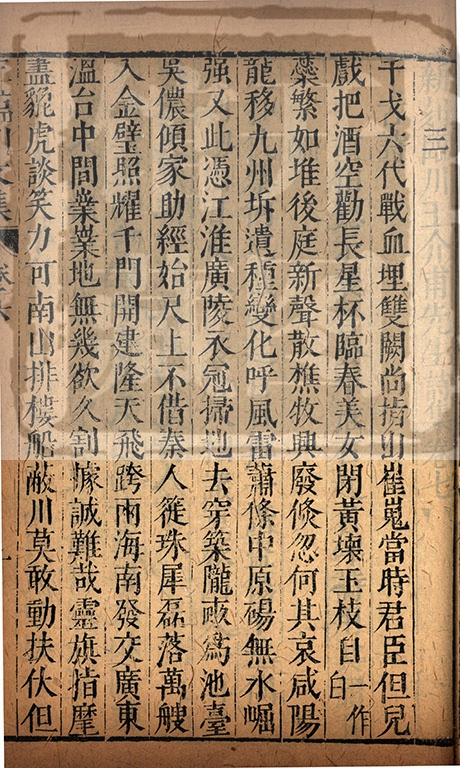 三
干戈六代戰血埋雙闕尚指山崔嵬當時君臣但兒
戲把酒空勸長星杯臨春美女閉黃壤玉枝自一作白
蘂繁如堆後庭新聲散樵牧興廢倏忽何其哀咸陽
龍移九州坼遺種變化呼風雷蕭條中原碭無水崛
强又此憑江淮廣陵衣冠掃地去穿築隴畝為池臺
吳儂傾家助經始尺土不借秦人簁珠犀磊落萬艘
入金璧照耀千門開建隆天飛跨兩海南發交廣東
溫台中間業業地無幾欲久割據誠難哉靈旗指麾
盡貔虎談笑力可南山排樓船蔽川莫敢動扶伏但